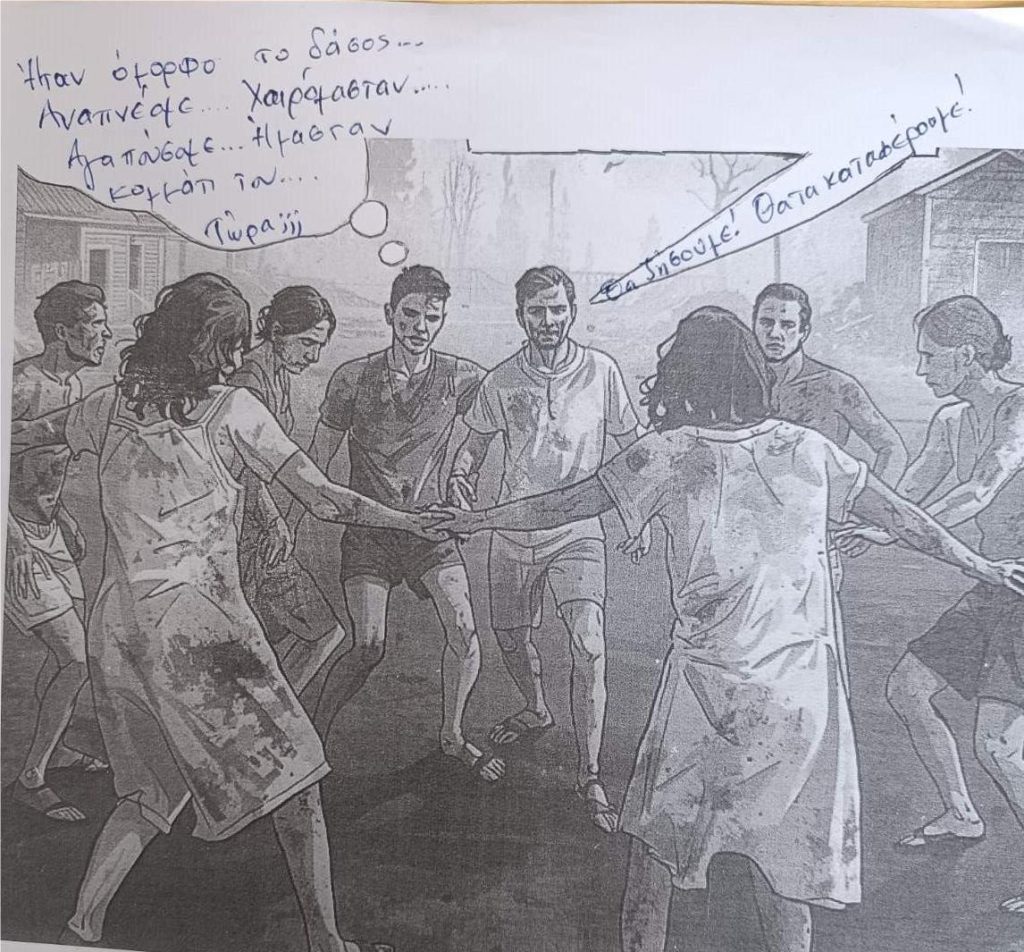 Ήταν όμορφο το δάσος...
Αναπνέαμε.... Χαιρόμασταν.....
Αγαπούσαμε... Ήμασταν
κομμάτι του....
Τώρα;;;
Θα ζήσουμε! Θα τα καταφέρουμε!